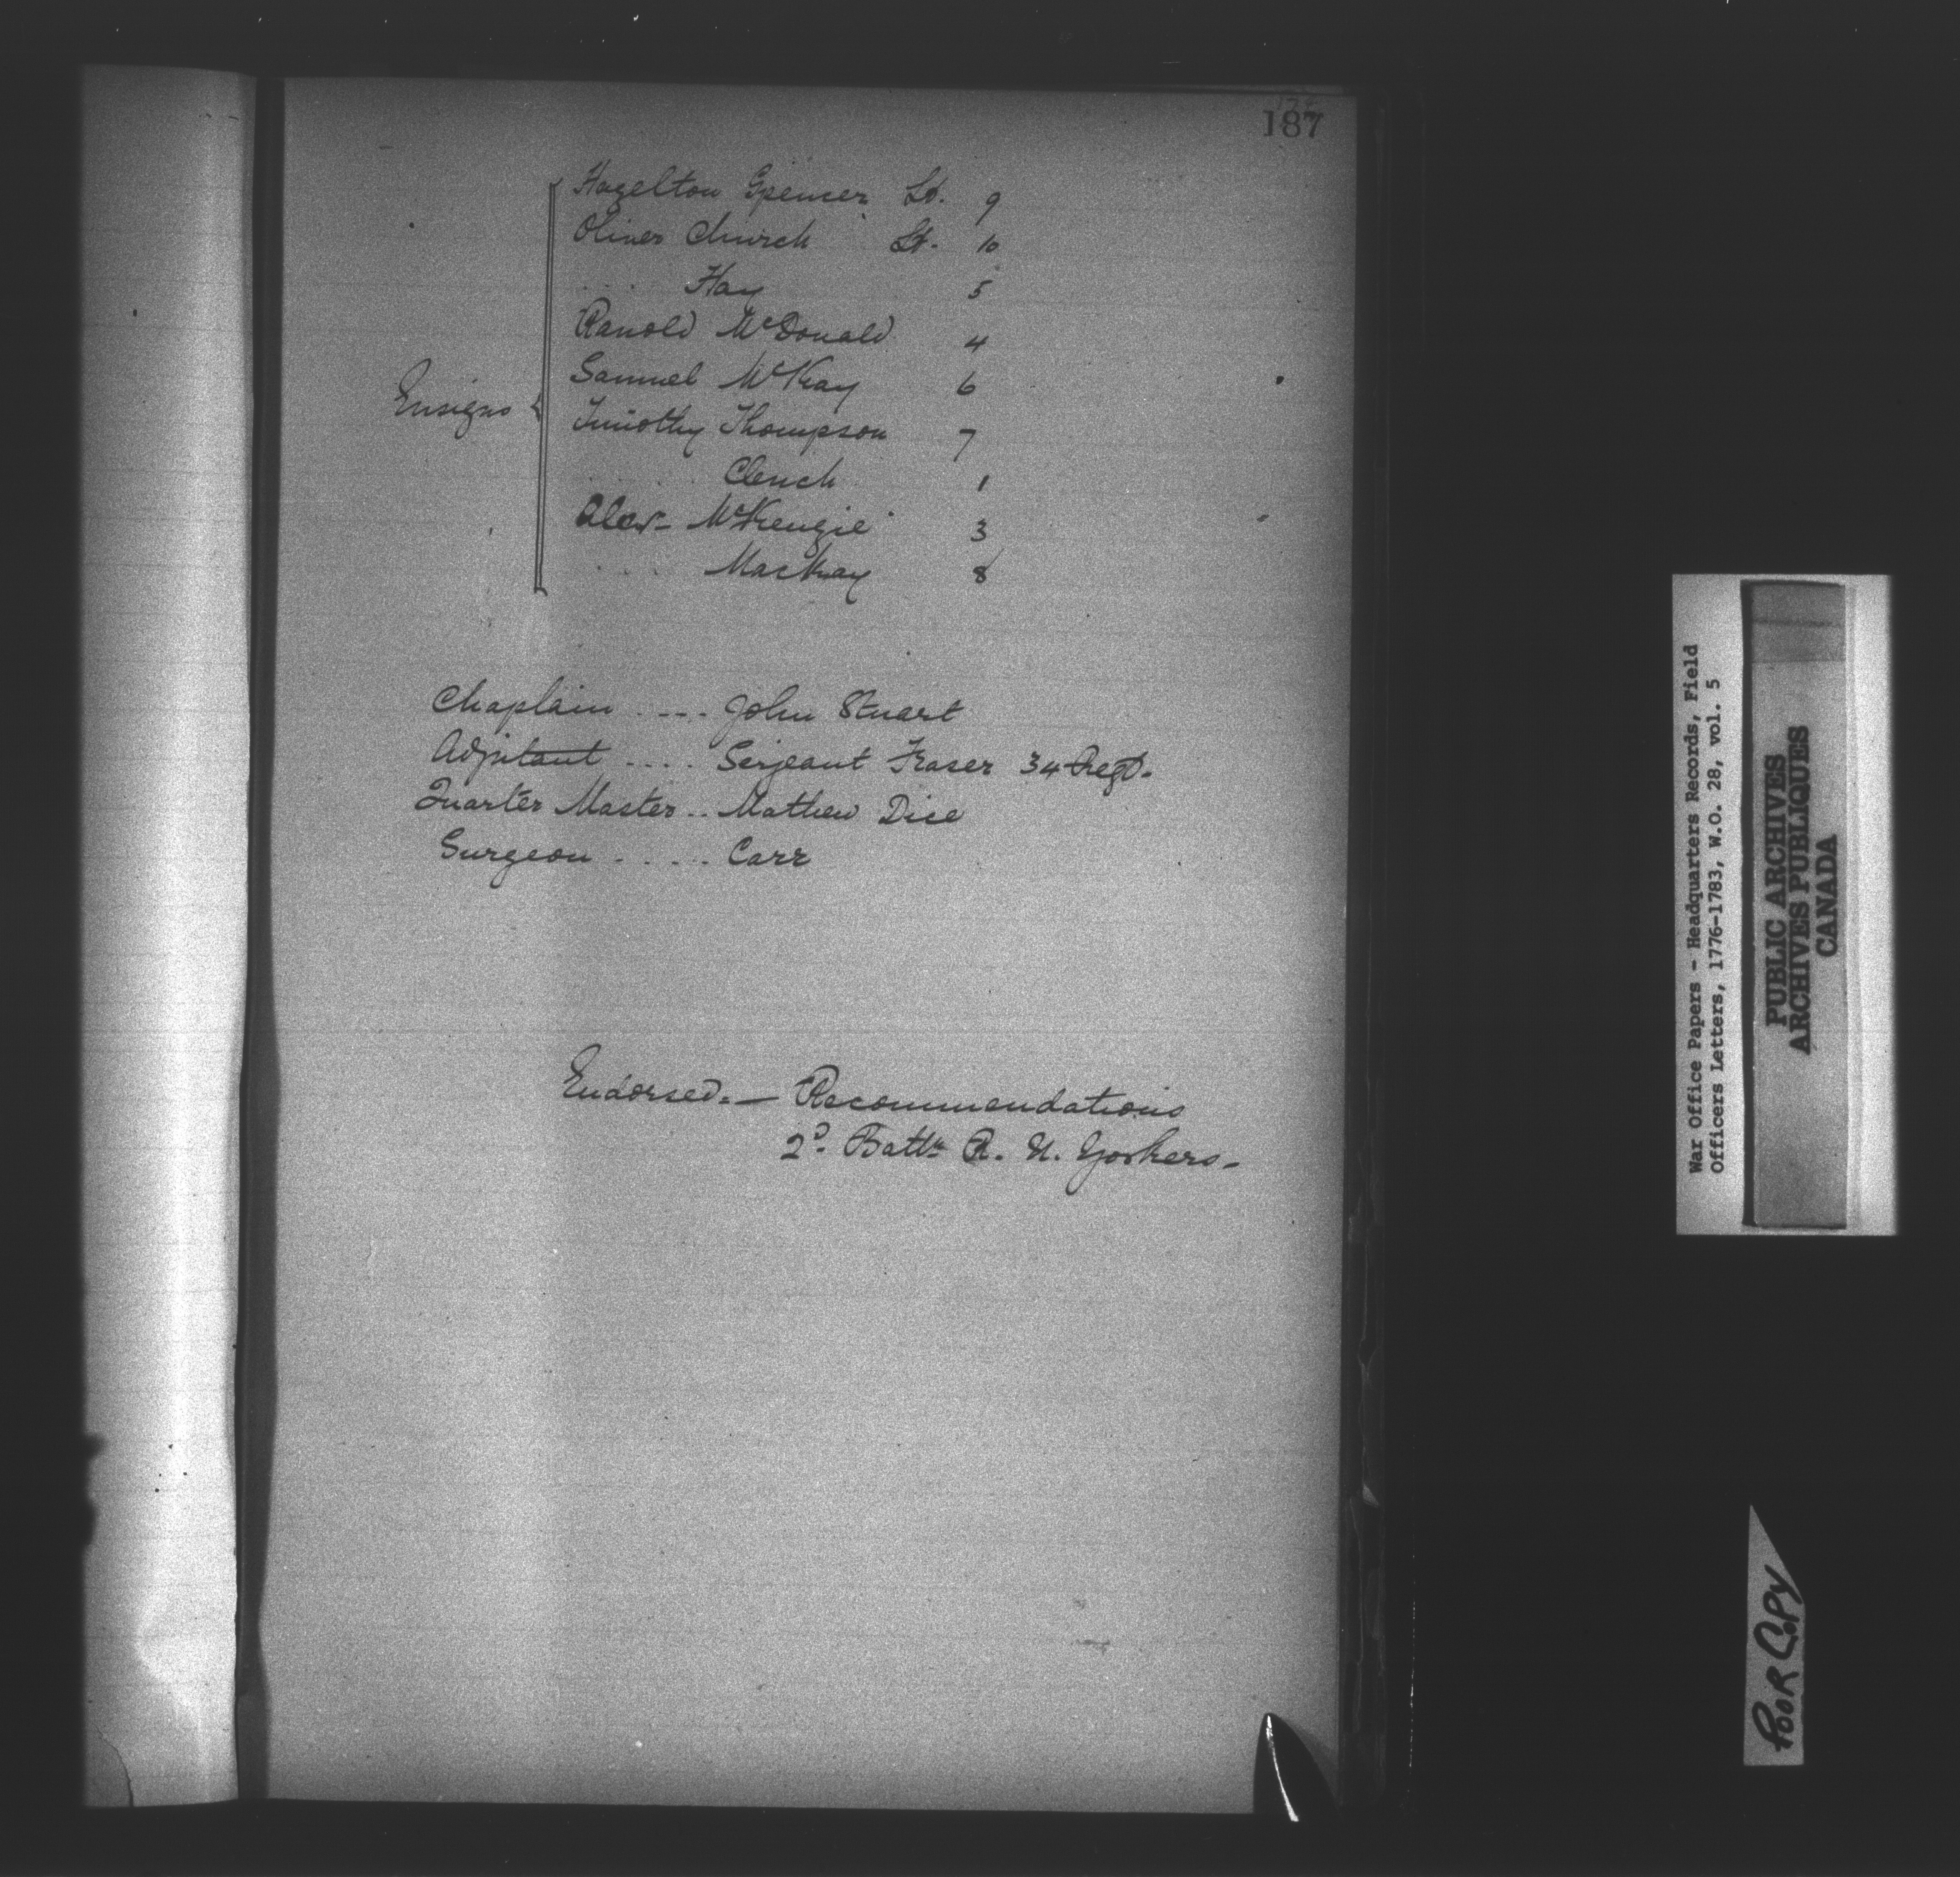 187
Hazelton Spencer Lt. 9
Oliver Church Lt. 10
. . . . Hay 5
Ranold McDonald 4
Samuel McKay 6
Ensigns { Timothy Thompson 7
. . . . . Clench 1
Alexr- McKenzie 3
. . . . Mackay 8
Chaplain . . . . John Stuart
Adjutant . . . . Serjeant Fraser 34 Regt.
Quarter Master . . Mathew Dice
Surgeon . . . . . Carr
Endorsed. — Recommendations
2d. Battn R. N. Yorkers -
War Office Papers - Headquarters Records, Field
Officers Letters, 1776-1783, W.O. 28, vol. 5
PUBLIC ARCHIVES
ARCHIVES PUBLIQUES
CANADA
POOR COPY